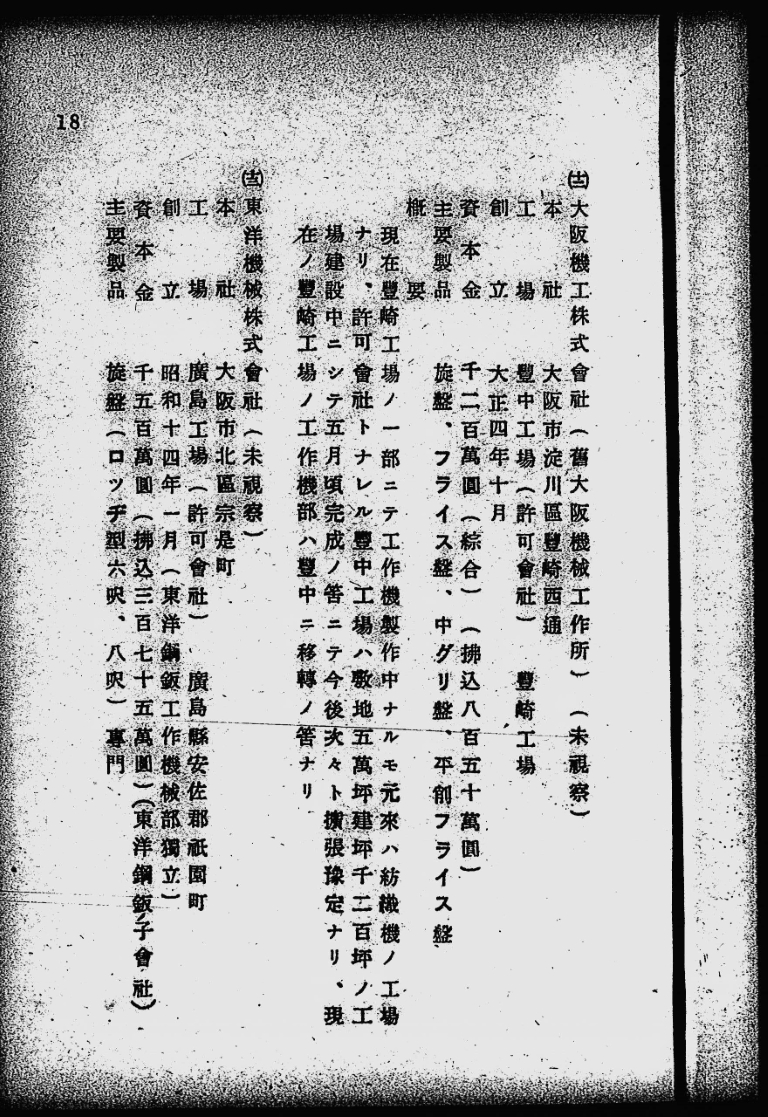 18
(十二)大阪機工株式會社(舊大阪機械工作所)(未視察)
本社 大阪市淀川區豐崎西通
工場 豐中工場(許可會社) 豐崎工場
創立 大正四年十月
資本金 千二百萬圓(綜合)(拂込八百五十萬圓)
主要製品 旋盤、フライス盤、中グリ盤、平削フライス盤
概要
現在豐崎工場ノ一部ニテ工作機製作中ナルモ元來ハ紡織機ノ工場
ナリ、許可會社トナレル豐中工場ハ敷地五萬坪建坪千二百坪ノ工
場建設中ニシテ五月頃完成ノ筈ニテ今後次々ト擴張豫定ナリ、現
在ノ豐崎工場ノ工作機部ハ豐中ニ移轉ノ筈ナリ
(十三)東洋機械株式會社(未視察)
本社 大阪市北區宗是町
工場 廣島工場(許可會社) 廣島縣安佐郡祇園町
創立 昭和十四年一月(東洋鋼鈑工作機械部獨立)
資本金 千五百萬圓(拂込三百七十五萬圓)(東洋鋼鈑子會社)
主要製品 旋盤(ロッヂ型六呎、八呎)專門